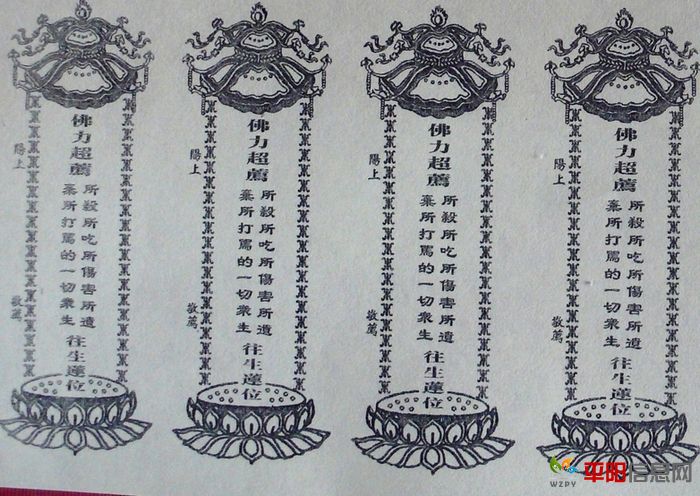 佛力超薦
所殺所吃所傷害所遺
棄所打罵的一切衆生
往生蓮位
陽上 敬薦
佛力超薦
所殺所吃所傷害所遺
棄所打罵的一切衆生
往生蓮位
陽上 敬薦
佛力超薦
所殺所吃所傷害所遺
棄所打罵的一切衆生
往生蓮位
陽上 敬薦
佛力超薦
所殺所吃所傷害所遺
棄所打罵的一切衆生
往生蓮位
陽上 敬薦
WZPY 平阳信息网